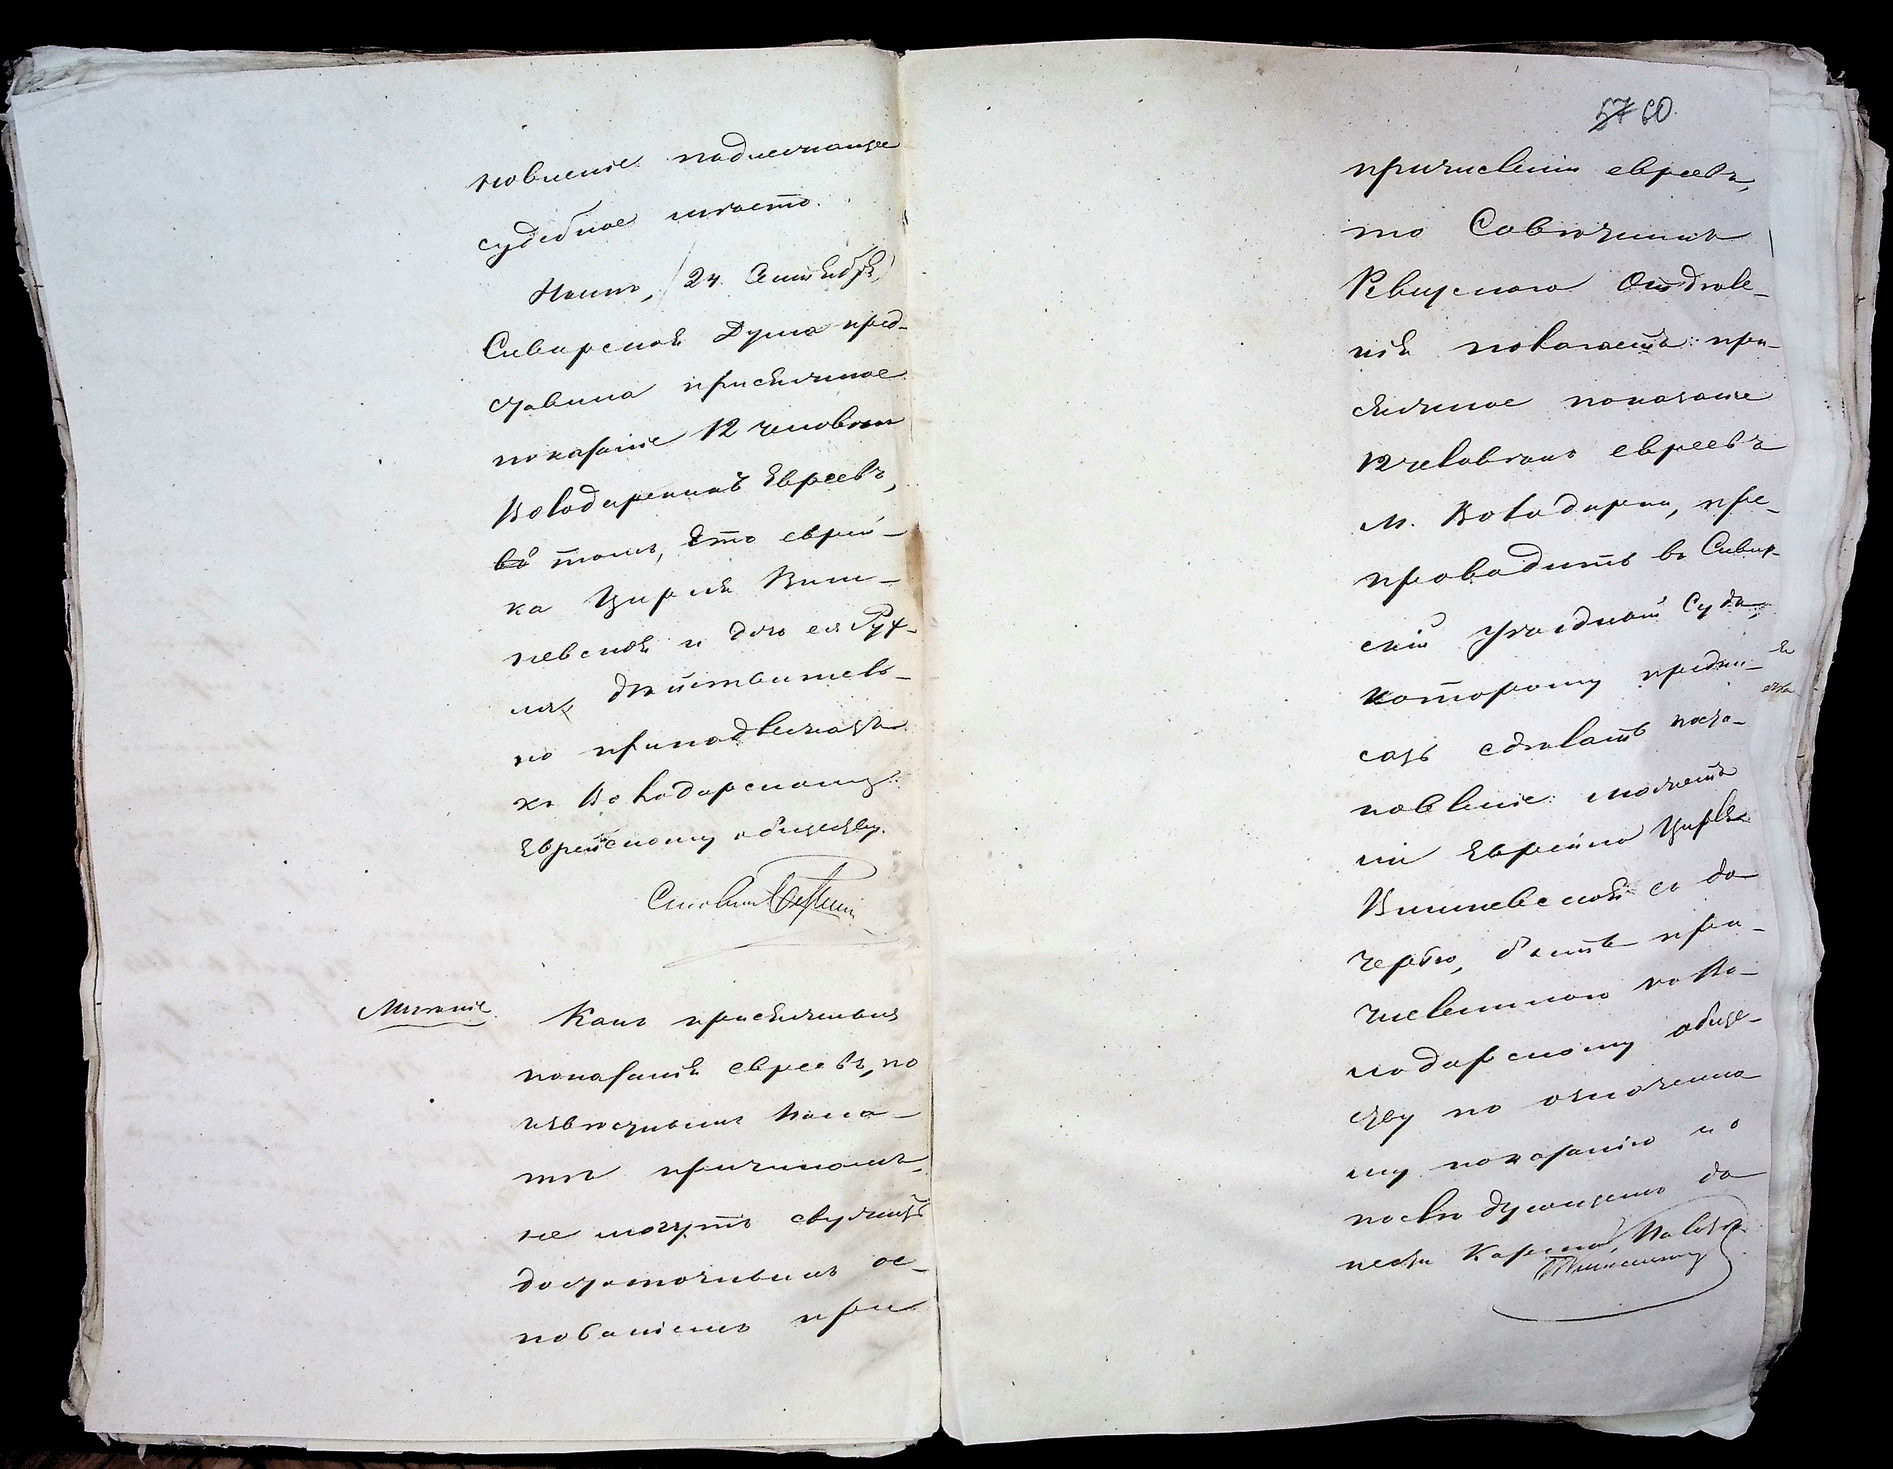 новленіе подлежащее
судебное мѣсто.
Нынѣ, /24 Сентября/
Сквирская Дума пред-
ставила присяжное
показаніе 12 человѣкъ
Володарскихъ Евреевъ,
въ томъ, что еврей-
ка Цирля Виш-
невская и дочь ея Рух-
ля, дѣйствитель-
но принадлежатъ
къ Володарскому
Еврейскому обществу.
Мнѣніе
Какъ присяжныя
показанія евреевъ, по
извѣстнымъ Пала-
тѣ причинамъ,
не могутъ служить
достаточнымъ ос-
нованіемъ при
57 60
причисленіи евреевъ,
то Совѣтникъ
Ревизскаго Отдѣле-
нія полагаетъ: при-
сяжное показаніе
12 человѣкъ евреевъ
м. Володарки, пре-
проводить въ Сквир-
скій Уѣздный Судъ,
которому предпи-
сать сдѣлать поста-
новленіе: можетъ
ли Еврейка Цирля
Вишневская съ до-
черью, быть при-
численною къ Во-
лодарскому обще-
ству по означенно-
му показанію и о
послѣдующемъ до-
нести Казенной Палатѣ.